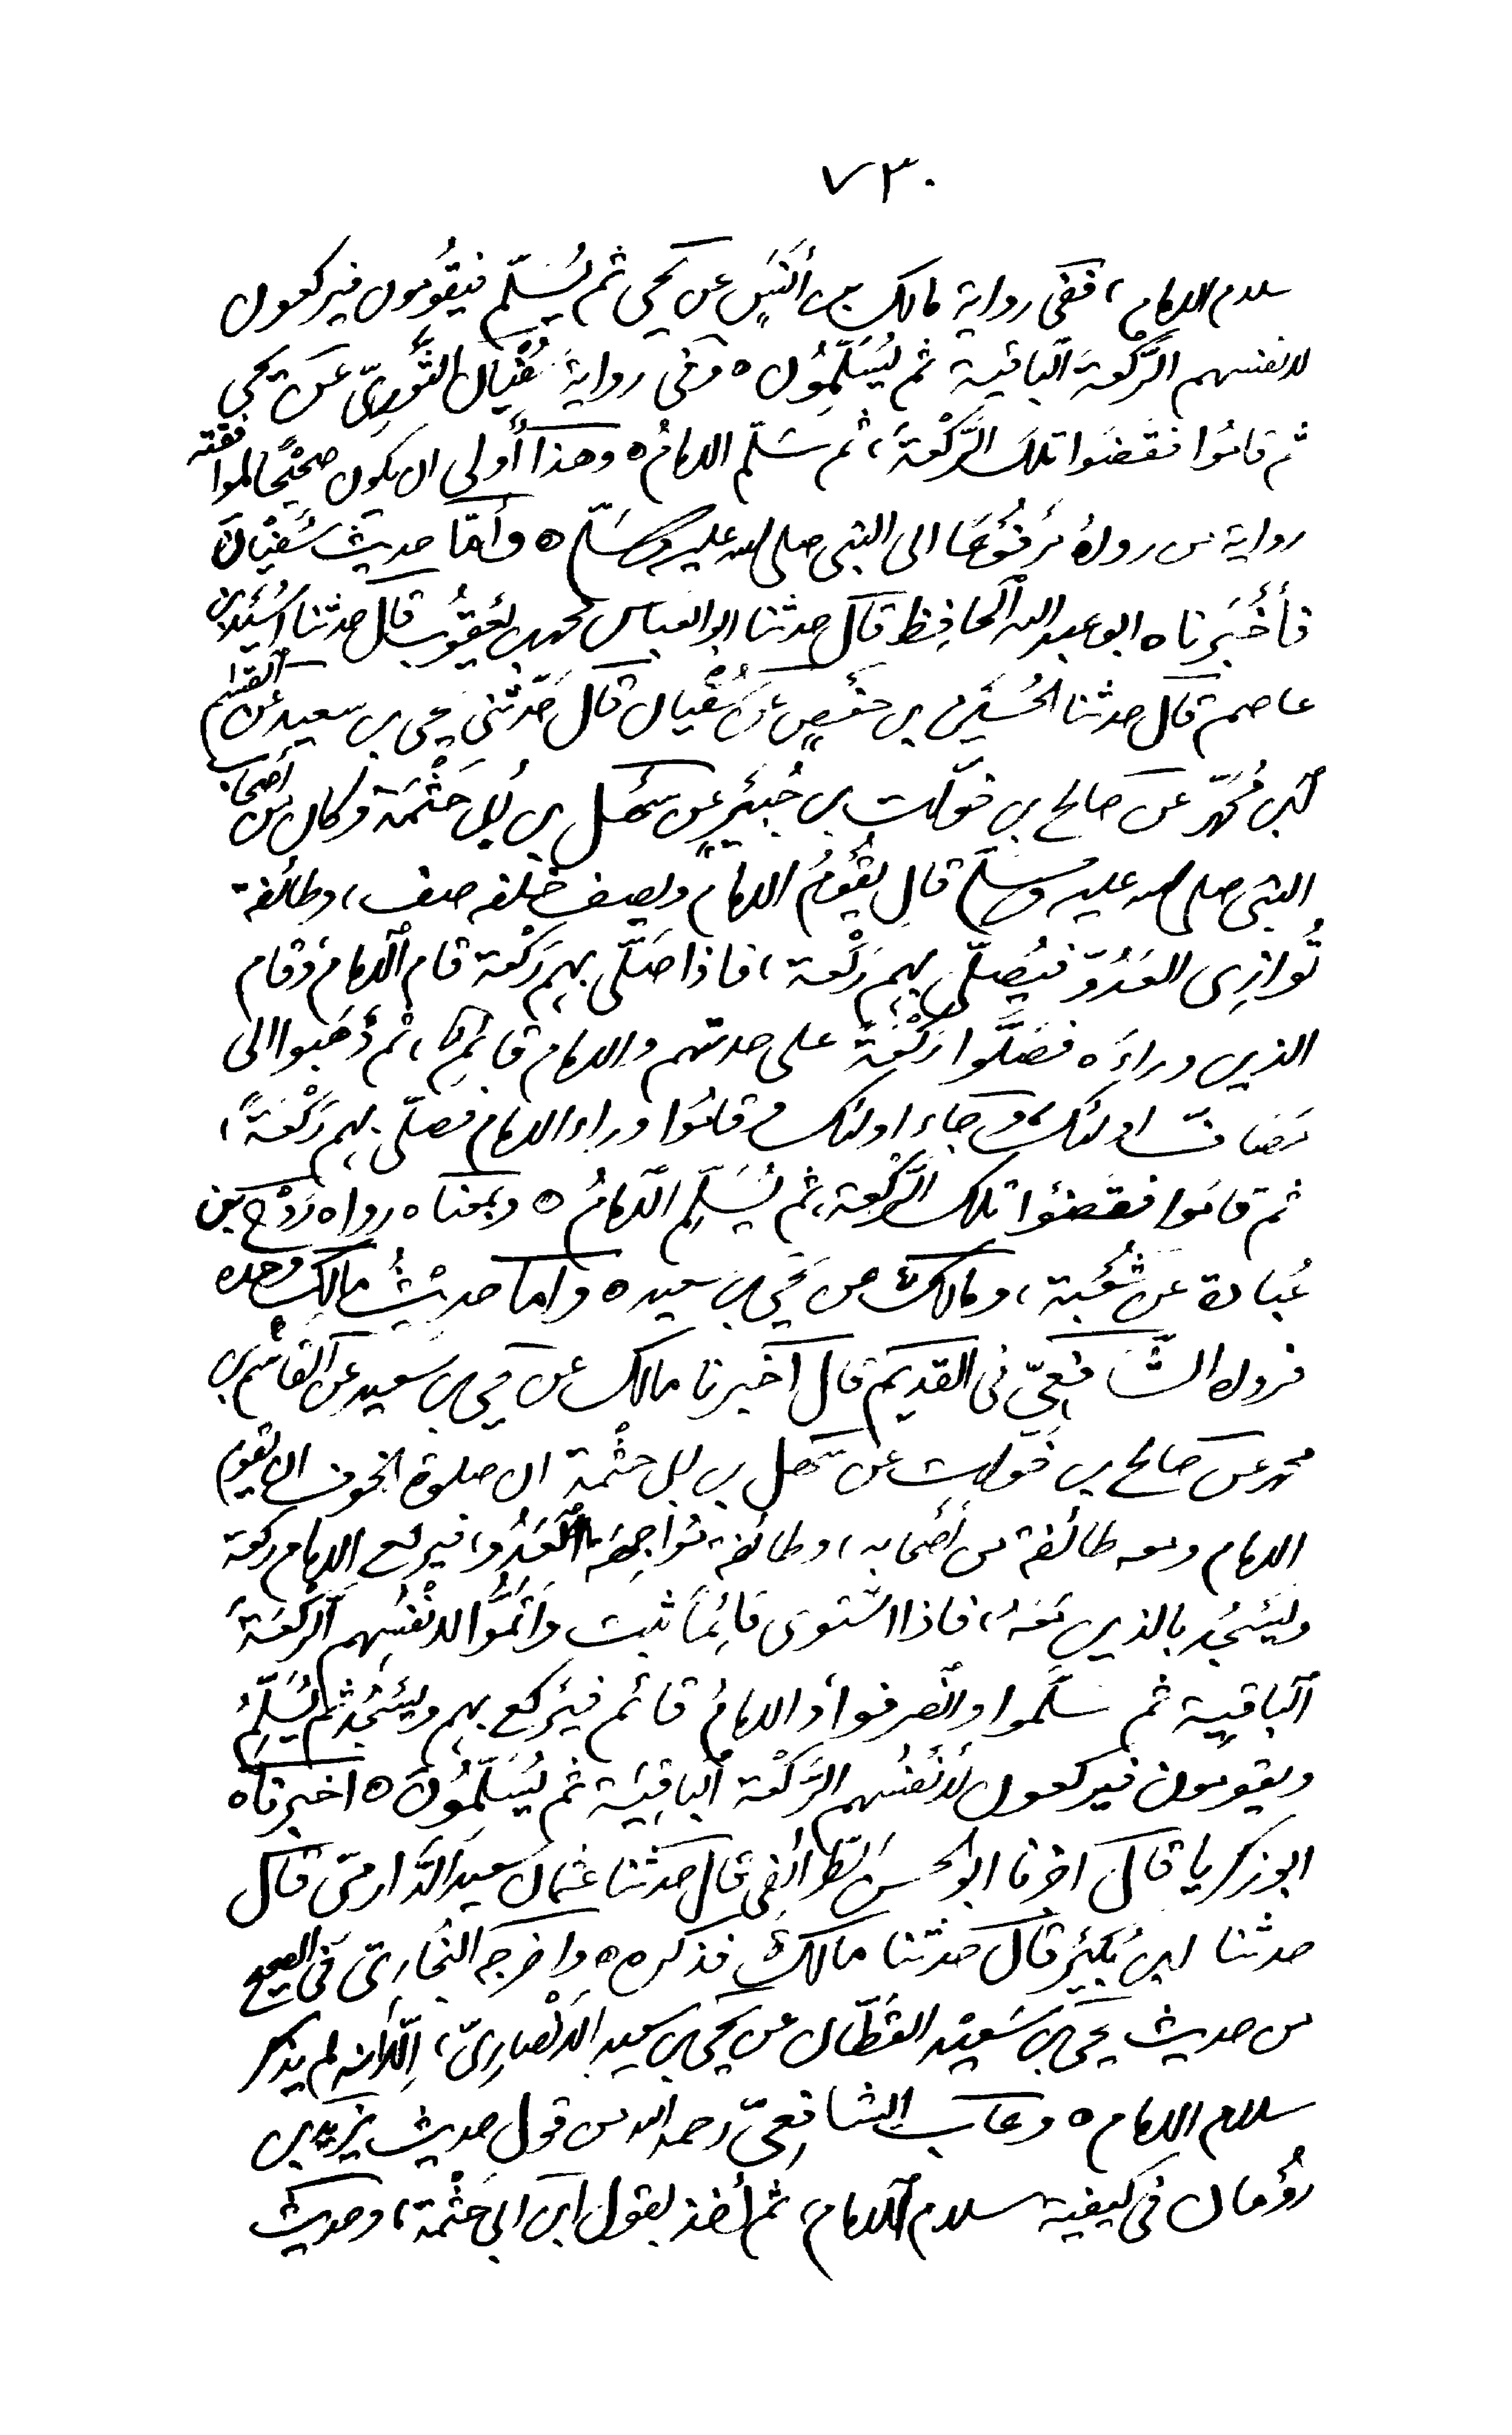 ٧٣٠
سلام الامام، ففى رواية مالك بن أنس عن يحيى ثم يُسلّم فيقُومون فيركعون
لانفسهم الرَّكْعة الباقية ثم يُسَلّمُون ه وفى رواية سُفْيان الثَّورىّ عن يحيى
ثم قامُوا فقَضَوا تلك الرَّكْعَة، ثم سَلّم الامامُ ه وهذا أولى ان يكون صحيْحًا لموافقته
رواية من رواهُ مَرفُوعًا الى النبى صلى الله عليه وسَلّم ه وأمّا حديث سُفْيَانَ
فأَخْبَرناه ابو عبد الله الحافِظ قال حدثنا ابو العباس محمد بن يعقُوب قال حدثنا اُسَيْد بن
عاصم قال حدثنا الحُسَين بن حفْصٍ عن سُفْيان قال حَدّثنى يحيى بن سعيد عن القسم
بن مُحَمّد عن صالح بن خوّات بن جُبَيْرٍ عن سَهْل بن أبى حَثْمَة وكان من أصحاب
النبى صلى الله عليه وسلّم قال يقُومُ الامام ويصف خلفه صف، وطائفة
تُوازِى العَدُوّ فيُصَلّى بهم رَكْعة، فاذا صَلّى بهم رَكْعة قام الامام وقام
الذين وراءَه فصَلَّوا رَكْعَةً على حدتهم والامام قائم، ثم ذَهَبوا الى
مَصَافّ اولئك وجاء اولئك وقامُوا وراء الامام فصلّى بهم رَكْعَةً،
ثم قامُوا فقضوا تلك الرَّكْعة، ثم يُسَلّم الامامُ ه وبمعناه رواه رَوْح بن
عُبادة عن شُعْبة، ومالك عن يَحْيى بن سعيد ه واما حديثُ مالِك وحده
فرواه الشّافعىّ فى القديم قال أخبرنا مالك عن يحيى بن سعيد عن القاسم بن
محمد عن صالح بن خَوّات عن سَهْل بن ابى حثْمة ان صلوة الخوف ان يقوم
الامام ومعه طائفة من أصحابه، وطائفة مُواجِهَة العَدُو، فيركع الامام ركعة
ويَسْجُد بالذين مَعَهُ، فاذا اسْتوى قائِمًا ثبت وأتمُّوا لانْفُسِهم الرَّكْعَةَ
الباقية ثم سَلّموا وانْصرفوا والامامُ قائم فيَركع بهم ويَسْجُد ثم يُسَلّمُ
ويقومون فيركعون لأنْفُسهم الرَّكْعة الباقِيَة ثم يُسَلِّمُونَ ه اخبرناه
ابو زكريا قال اخبرنا ابو الحسن الطّرائفى قال حدّثنا عثمان سعيد الدّارمىّ قال
حدثنا ابن بُكَيْر قال حدّثنا مالكُ فذكره ه واخرجه البُخارىّ فى الصحيح
من حديث يحيى بن سَعيْد القَطّان عن يحيى بن سعيد الانْصارِىّ، إلّا أنه لم يذكر
سلام الامام ه وعاب الشافعىّ رحمه الله من قول حديث يزيد بن
رُوْمان فى كيفية سلام الامام، ثم أخذ بقول ابن ابى حَثْمة، وحديث